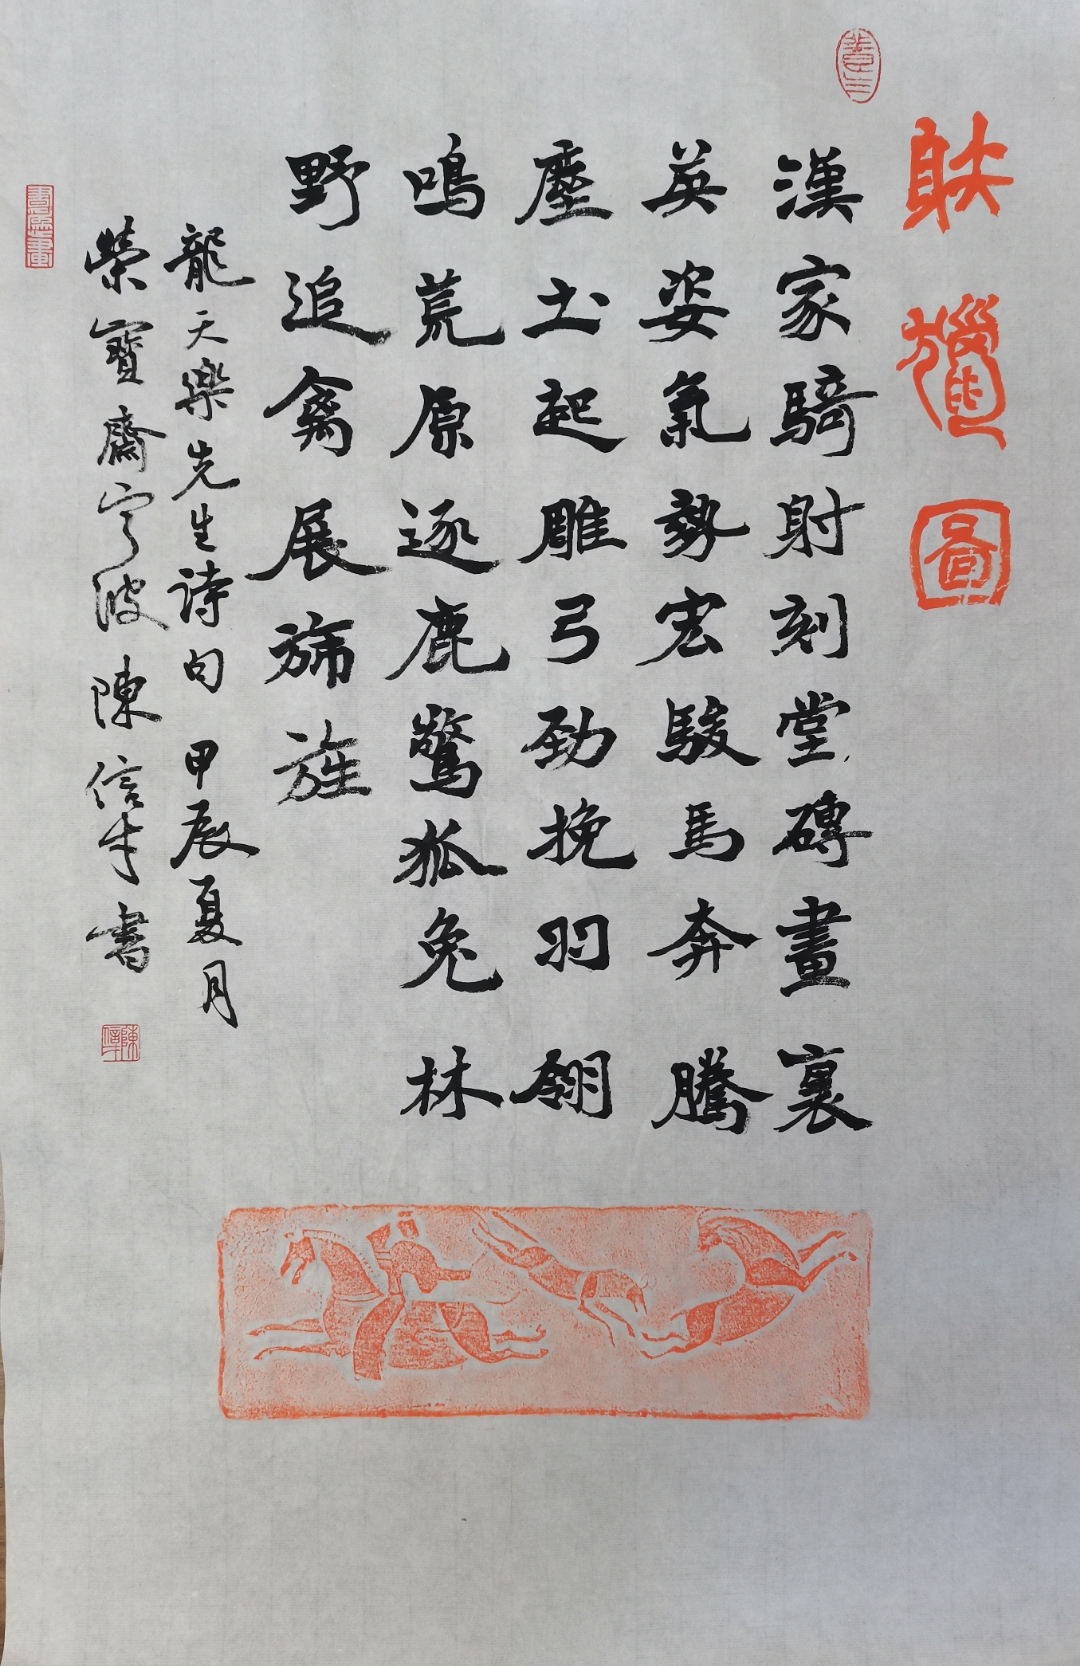 䠶獵圖
漢家騎射刻堂磚畫裏
英姿氣勢宏駿馬奔騰
塵土起雕弓勁挽羽翎
鳴荒原逐鹿驚狐兔林
野追禽展旆旌
龍天樂先生诗句 甲辰夏月
榮寶齋宁波 陳信 書